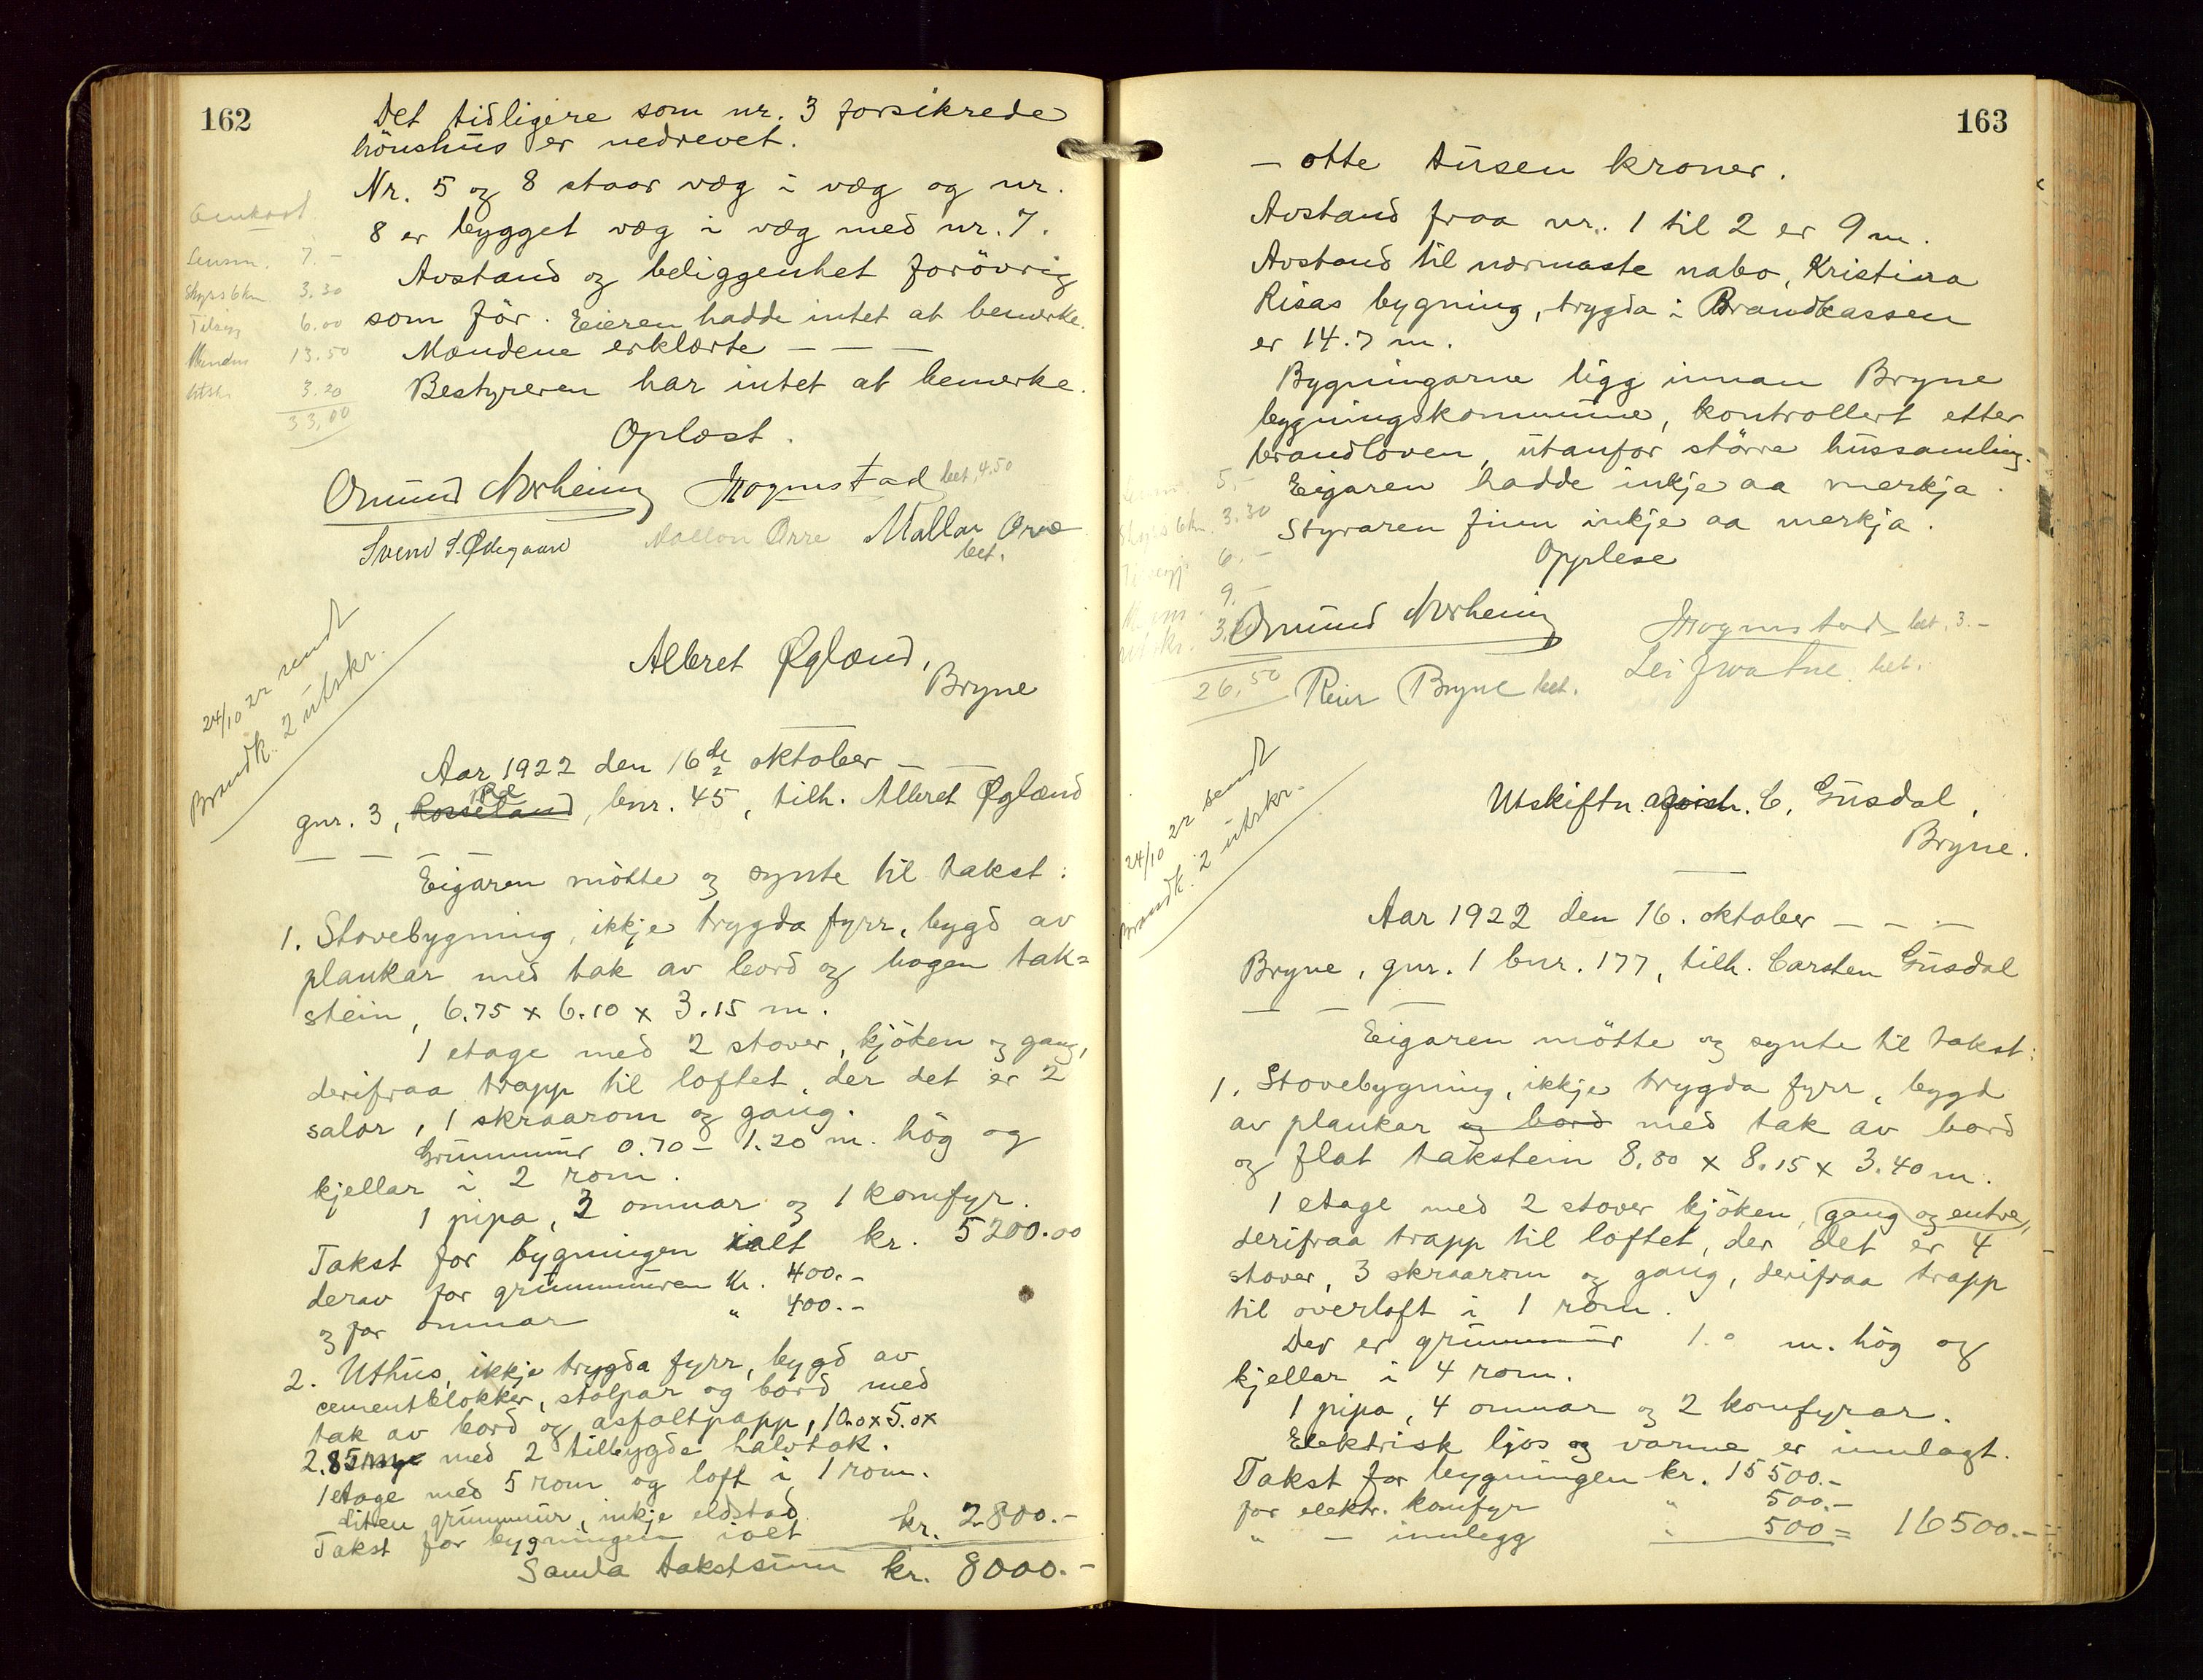 162
Det tidligere som nr. 3 forsikrede
hönshus er nedrevet.
Nr. 5 og 8 staar væg i væg og nr.
8 er bygget væg i væg med nr. 7.
Avstand og beliggenhet forövrig
som för. Eieren hadde intet at bemerke.
Mændene erklærte — — —
Bestyreren har intet at bemerke.
Oplæst.
Omkost.
Lensm. 7.-
Skyss 6 km 3.30
Tillegg 6.00
Mendene 13.50
Utskr. 3.20
33,00
Omund Norheim Mognestad bet, 4.50
Svend S. Ødegaard Mallon Orre Mallon Orre
bet.
24/10 22 sendt
Brandk. 2 utskr.
Albret Øglænd,
Bryne
Aar 1922 den 16de oktober — —
gnr. 3, Rosseland, bnr. 45, tilh. Albret Øglænd
— — — —
Eigaren mötte og synte til takst:
1. Stovebygning, ikkje trygda fyrr, bygd av
plankar med tak av bord og hogen tak=
stein, 6.75 x 6.10 x 3.15 m.
1 etage med 2 stover, kjöken og gang,
derifraa trapp til loftet, der det er 2
salar, 1 skraarom og gang.
Grunnmur 0.70 - 1.20 m. hög og
kjellar i 2 rom.
1 pipa, 2 omnar og 1 komfyr.
Takst for bygningen ialt kr. 5200.00
derav for grunnmuren kr. 400.-
og for omnar " 400.-
2. Uthus, ikkje trygda fyrr, bygd av
cementblokker, stolpar og bord med
tak av bord og asfaltpapp, 10.0 x 5.0 x
2.85 m med 2 tilbygde halvtak.
1 etage med 5 rom og loft i 1 rom.
Liten grunnmur, inkje eldstad
Takst for bygningen ialt kr. 2800.-
Samla takstsum kr. 8000.-
163
- otte tusen kroner.
Avstand fraa nr. 1 til 2 er 9 m.
Avstand til nærmaste nabo, Kristina
Risas bygning, trygda i Brandkassen
er 14.7 m.
Bygningarne ligg innan Bryne
bygningskommune, kontrollert etter
brandloven, utanfor större hussamling.
Eigaren hadde inkje aa merkja.
Styraren finn inkje aa merkja.
Opplese
5,-
Skyss 6 km. 3.30
6.-
9.-
utskr. 3.20
26,50
Omund Norheim Mognestad bet, 3.-
Reier Bryne bet. Leif Watne bet.
24/10 22 sendt
Brandk. 2 utskr.
Utskiftn. C. Gusdal,
Bryne.
Aar 1922 den 16. oktober — — —
Bryne, gnr. 1 bnr. 177, tilh. Carsten Gusdal
— — —
Eigaren mötte og synte til takst:
1. Stovebygning, ikkje trygda fyrr, bygd
av plankar og bord med tak av bord
og flat takstein 8.80 x 8.15 x 3.40 m.
1 etage med 2 stover kjöken, gang og entre,
derifraa trapp til loftet, der det er 4
stover, 3 skraarom og gang, derifraa trapp
til överloft i 1 rom.
Der er grunnmur 1.0 m. hög og
kjellar i 4 rom.
1 pipa, 4 omnar og 2 komfyrar.
Elektrisk ljos og varme er innlagt.
Takst for bygningen kr. 15500.-
for elektr. komfyr " 500.-
" - innlegg " 500= 16500.-